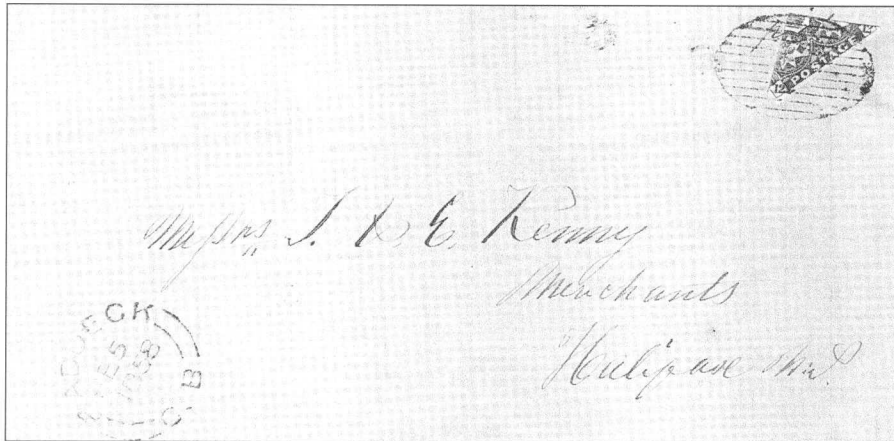 POSTAGE
Messrs. T. & E. Kenny
Merchants
Halifax
1858
C B